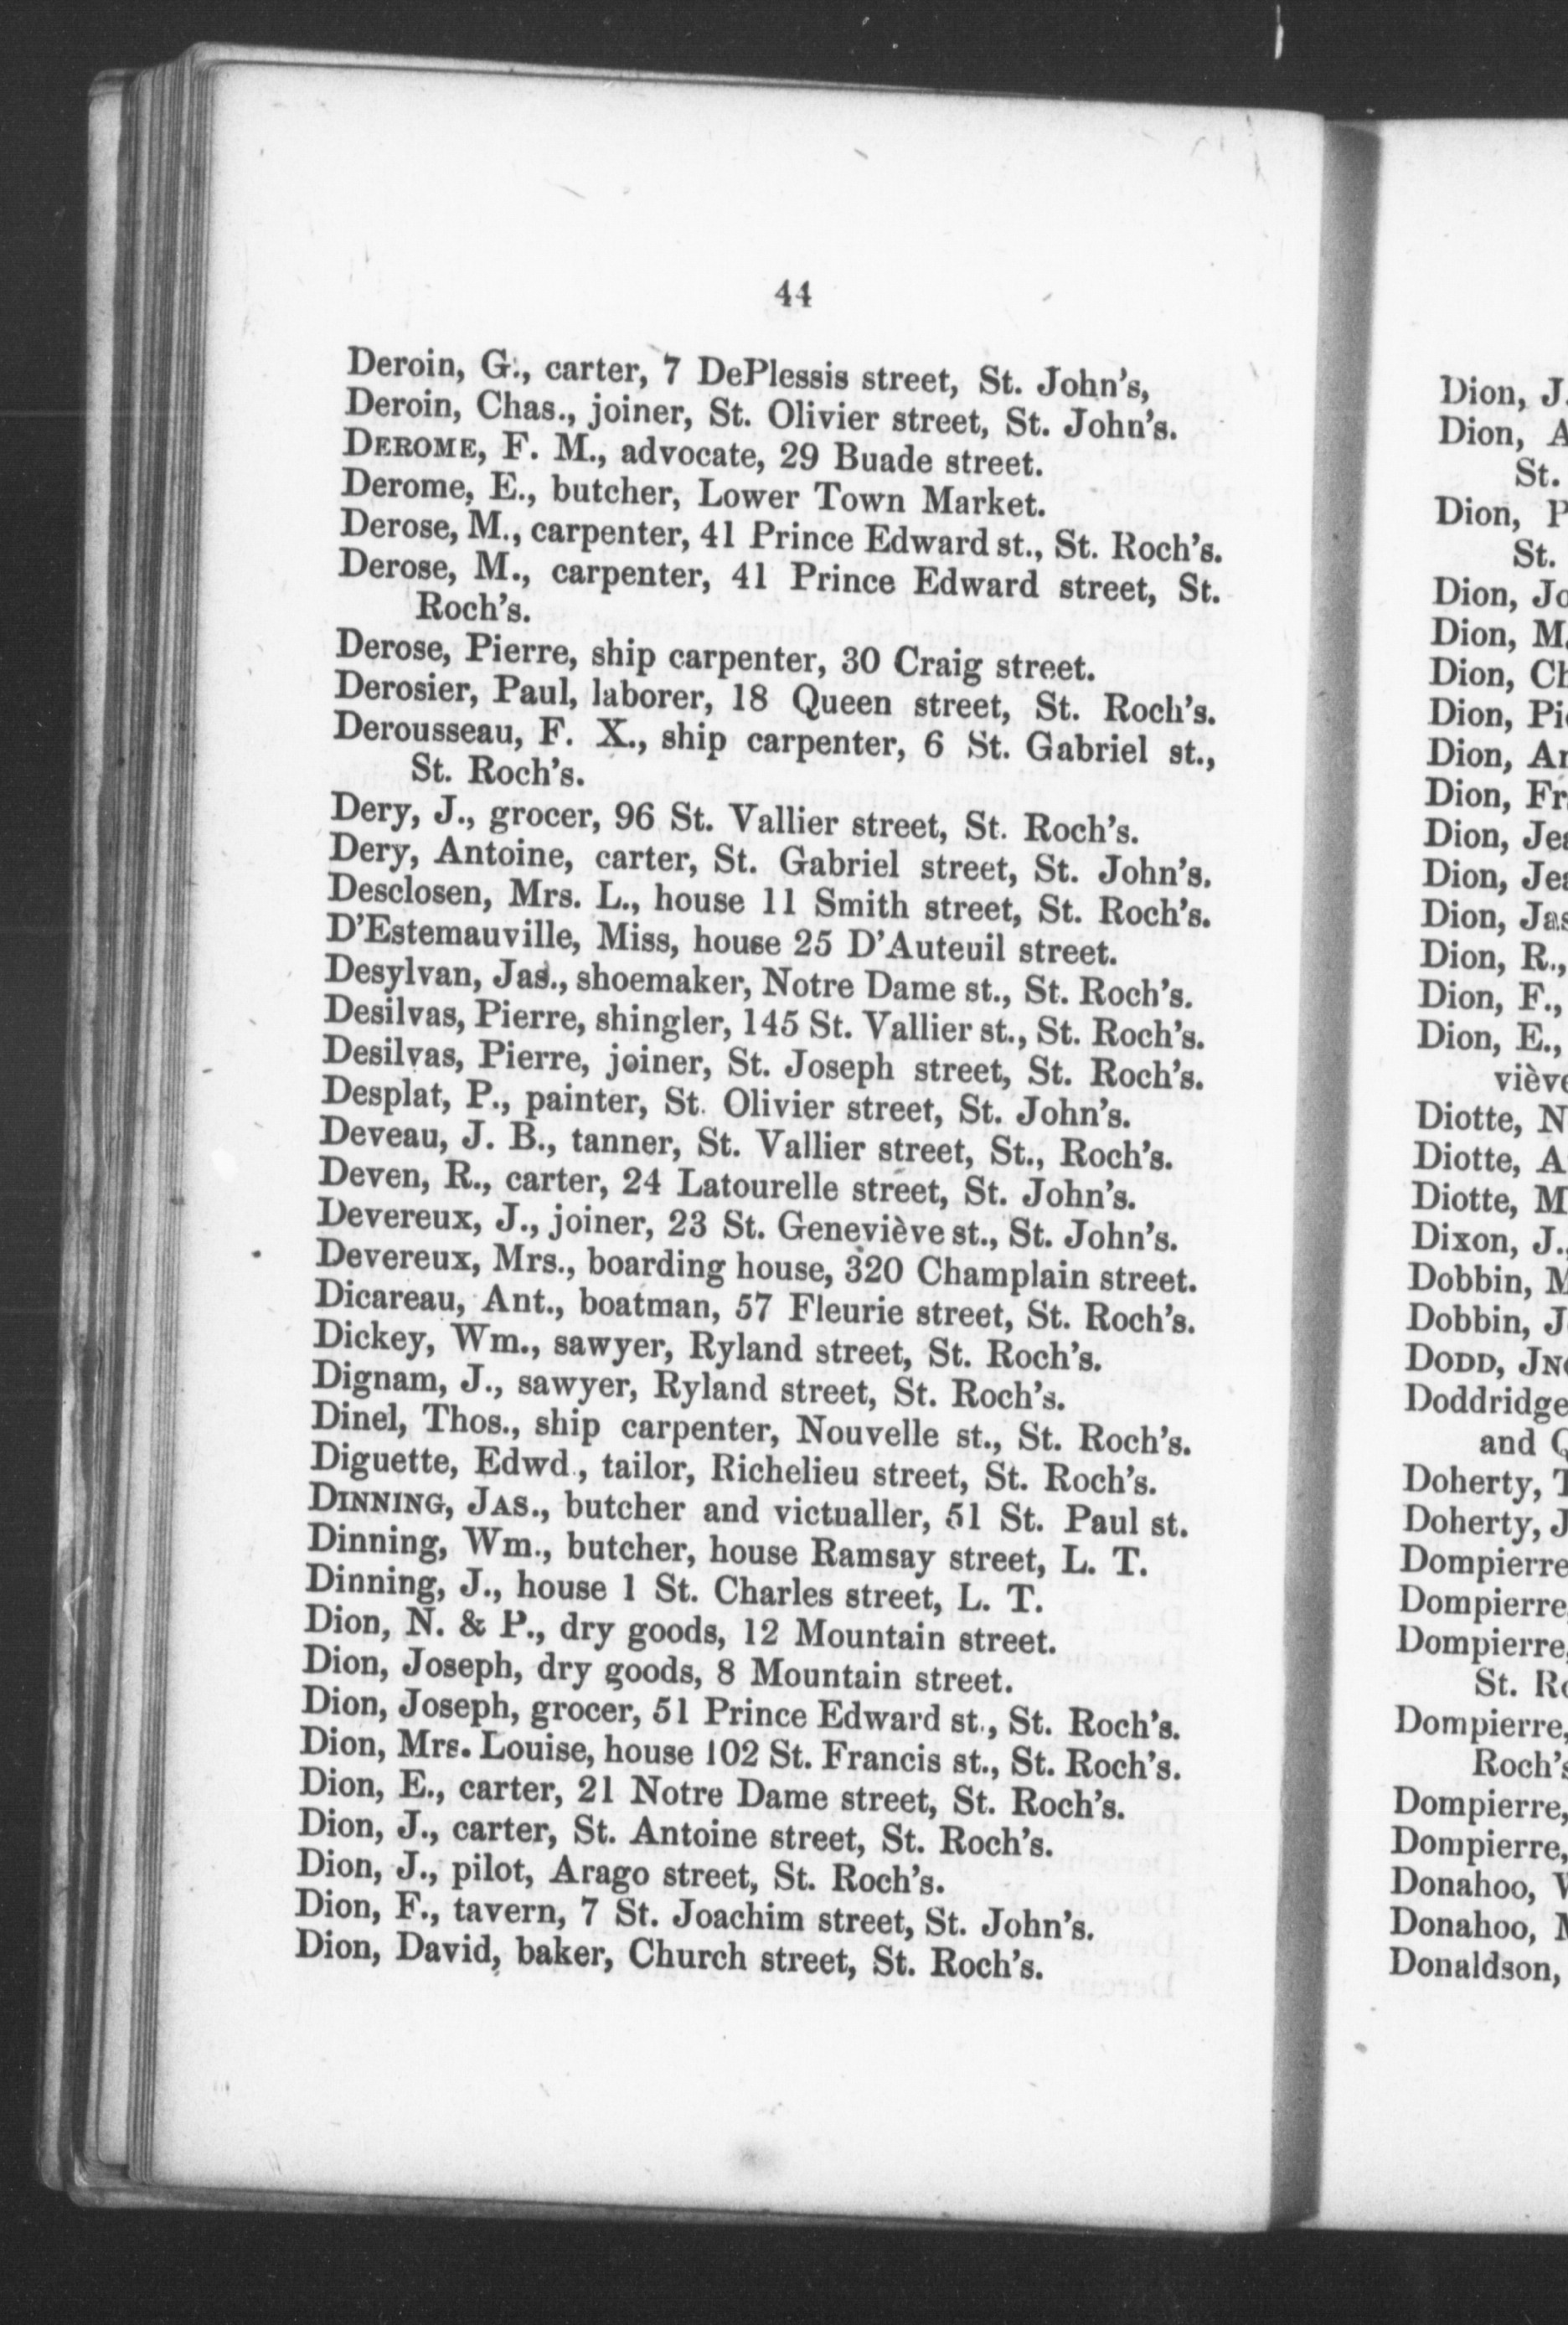 44
Deroin, G., carter, 7 DePlessis street, St. John's,
Deroin, Chas., joiner, St. Olivier street, St. John's.
DEROME, F. M., advocate, 29 Buade street.
Derome, E., butcher, Lower Town Market.
Derose, M., carpenter, 41 Prince Edward st., St. Roch's.
Derose, M., carpenter, 41 Prince Edward street, St.
Roch's.
Derose, Pierre, ship carpenter, 30 Craig street.
Derosier, Paul, laborer, 18 Queen street, St. Roch's.
Derousseau, F. X., ship carpenter, 6 St. Gabriel st.,
St. Roch's.
Dery, J., grocer, 96 St. Vallier street, St. Roch's.
Dery, Antoine, carter, St. Gabriel street, St. John's.
Desclosen, Mrs. L., house 11 Smith street, St. Roch's.
D'Estemauville, Miss, house 25 D'Auteuil street.
Desylvan, Jas., shoemaker, Notre Dame st., St. Roch's.
Desilvas, Pierre, shingler, 145 St. Vallier st., St. Roch's.
Desilvas, Pierre, joiner, St. Joseph street, St. Roch's.
Desplat, P., painter, St. Olivier street, St. John's.
Deveau, J. B., tanner, St. Vallier street, St., Roch's.
Deven, R., carter, 24 Latourelle street, St. John's.
Devereux, J., joiner, 23 St. Geneviève st., St. John's.
Devereux, Mrs., boarding house, 320 Champlain street.
Dicareau, Ant., boatman, 57 Fleurie street, St. Roch's.
Dickey, Wm., sawyer, Ryland street, St. Roch's.
Dignam, J., sawyer, Ryland street, St. Roch's.
Dinel, Thos., ship carpenter, Nouvelle st., St. Roch's.
Diguette, Edwd., tailor, Richelieu street, St. Roch's.
DINNING, JAS., butcher and victualler, 51 St. Paul st.
Dinning, Wm., butcher, house Ramsay street, L. T.
Dinning, J., house 1 St. Charles street, L. T.
Dion, N. & P., dry goods, 12 Mountain street.
Dion, Joseph, dry goods, 8 Mountain street.
Dion, Joseph, grocer, 51 Prince Edward st., St. Roch's.
Dion, Mrs. Louise, house 102 St. Francis st., St. Roch's.
Dion, E., carter, 21 Notre Dame street, St. Roch's.
Dion, J., carter, St. Antoine street, St. Roch's.
Dion, J., pilot, Arago street, St. Roch's.
Dion, F., tavern, 7 St. Joachim street, St. John's.
Dion, David, baker, Church street, St. Roch's.
Dion, J.
Dion,
St.
Dion,
St.
Dion,
Dion, M.
Dion,
Dion,
Dion,
Dion,
Dion,
Dion,
Dion,
Dion, R.,
Dion, F.,
Dion, E.,
Diotte,
Diotte,
Diotte,
Dixon, J.,
Dobbin,
Dobbin,
DODD,
Doddridge
and
Doherty,
Doherty,
Dompierre
Dompierre,
Dompierre,
St.
Dompierre,
Roch's
Dompierre,
Dompierre,
Donahoo,
Donahoo,
Donaldson,